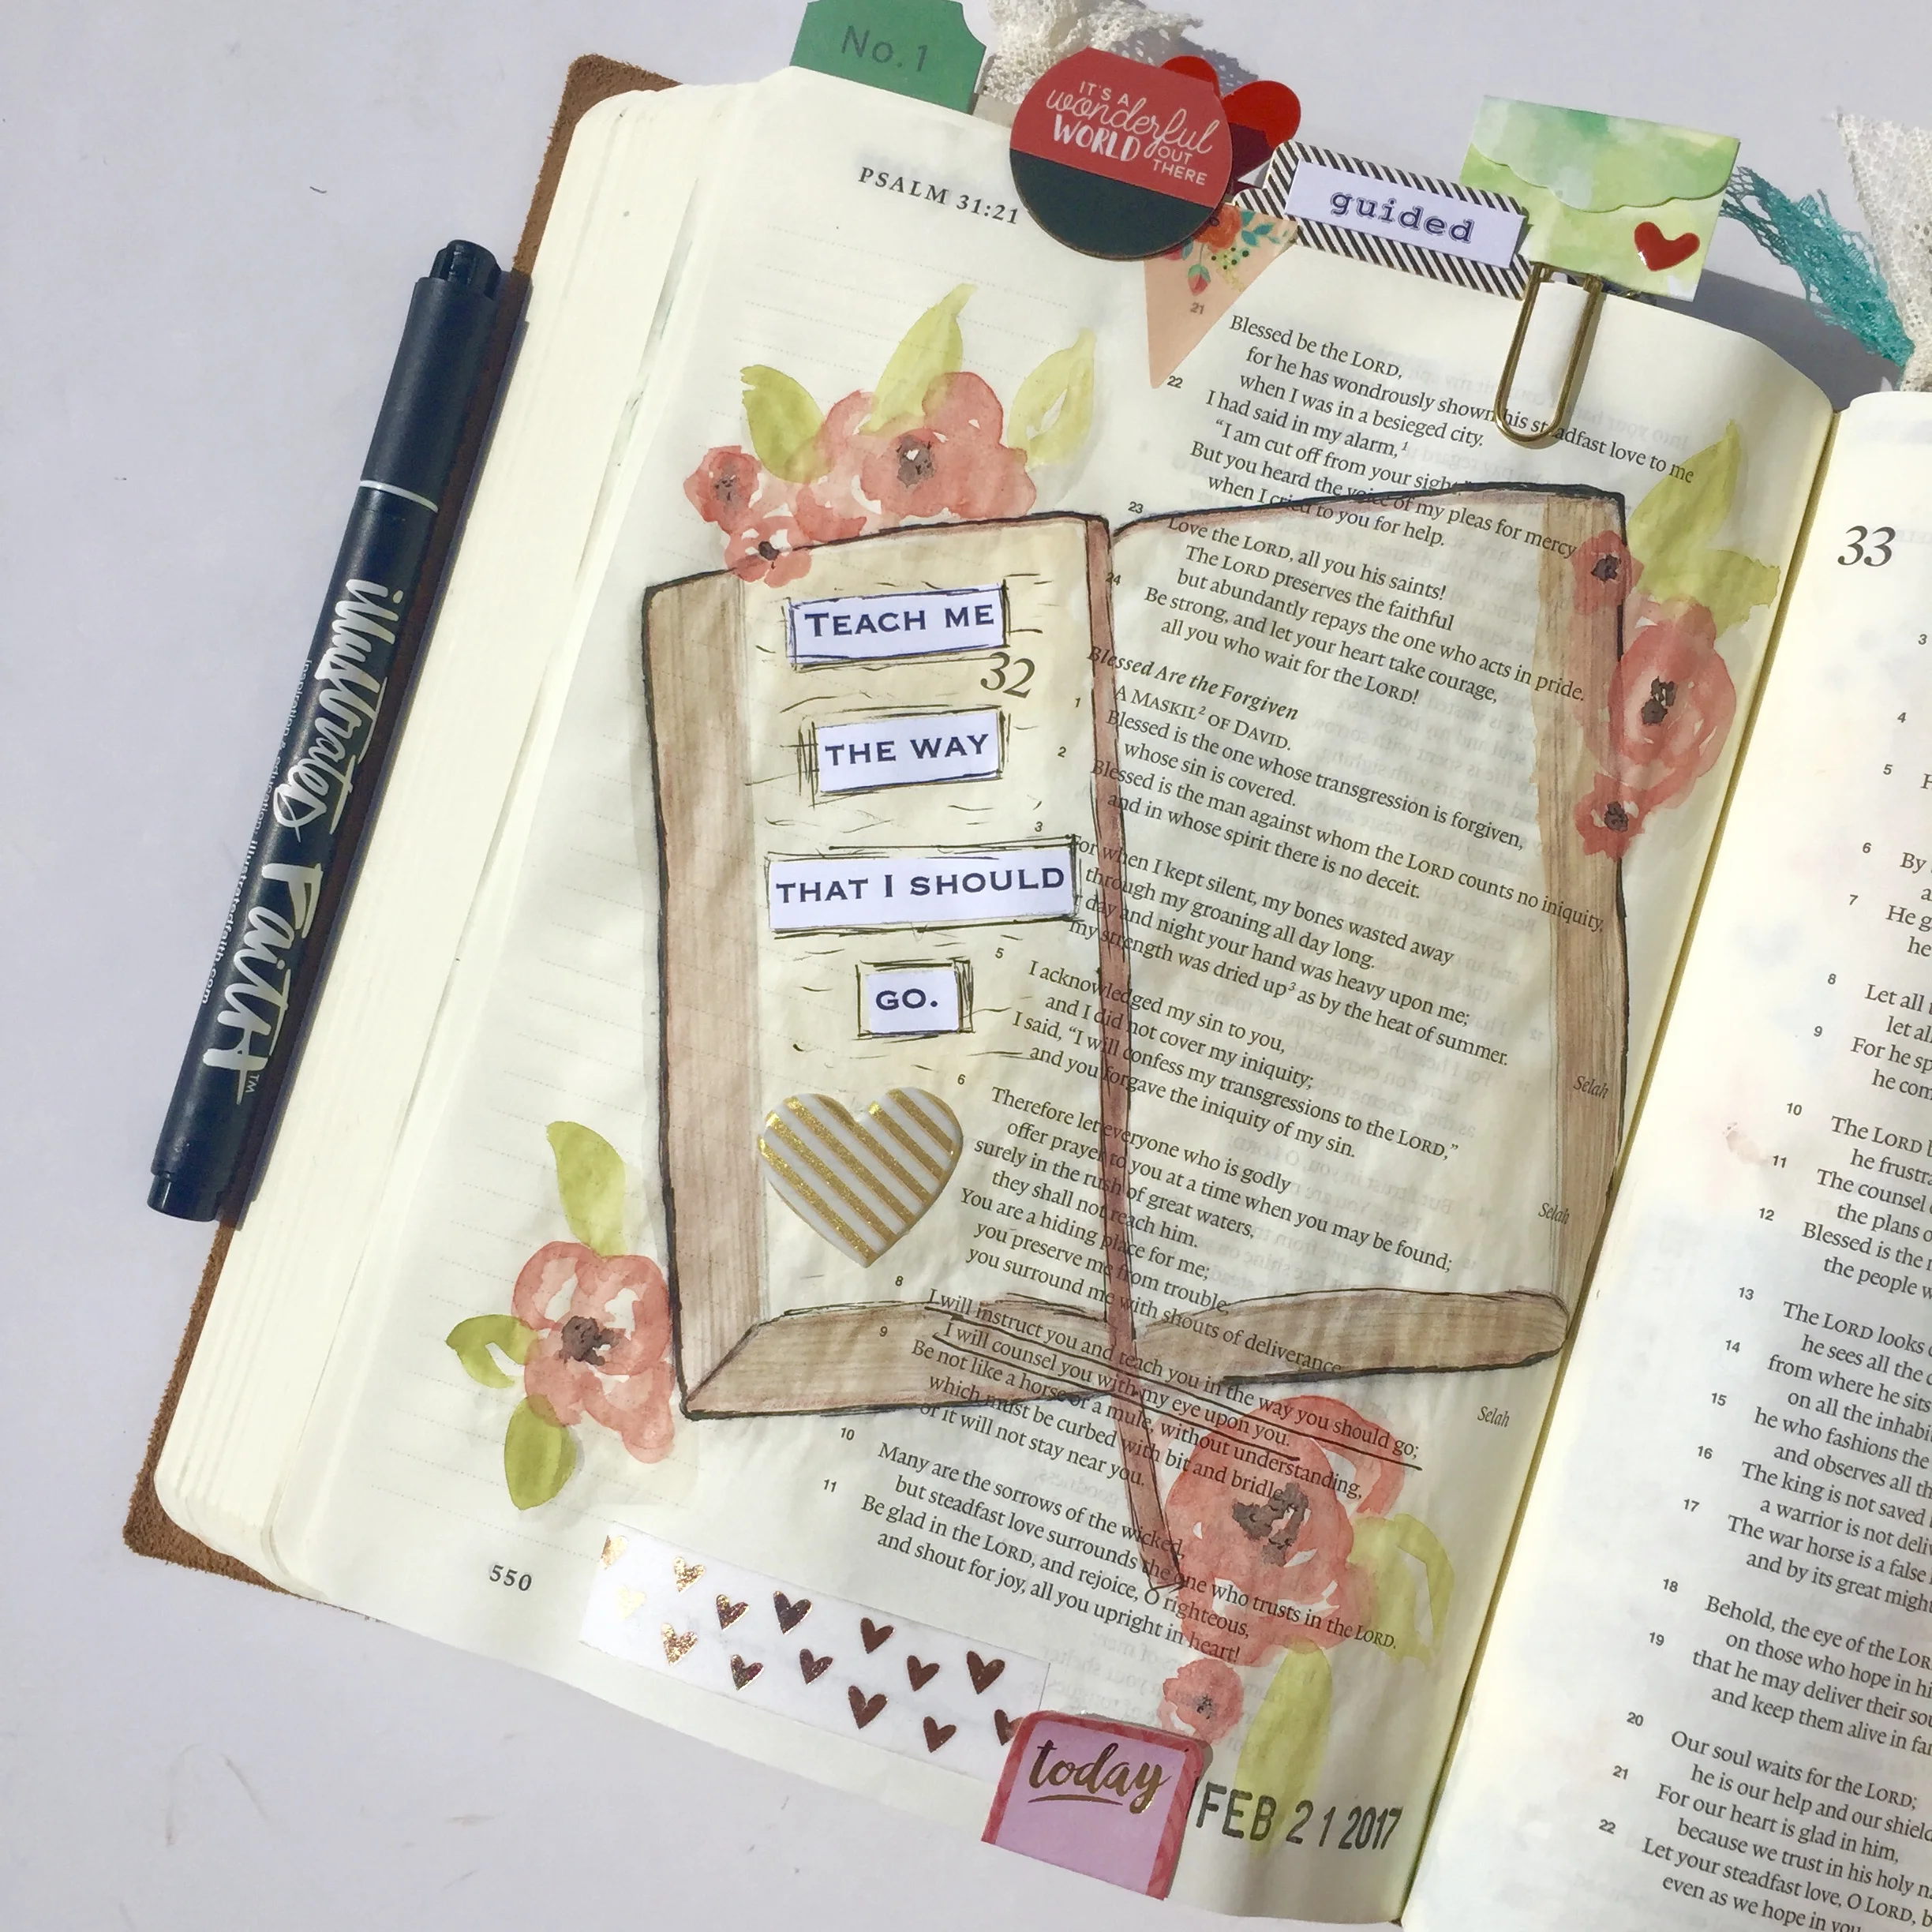 No. 1
IT'S A
wonderful
WORLD OUT
THERE
guided
PSALM 31:21
21 Blessed be the LORD,
for he has wondrously shown his steadfast love to me
when I was in a besieged city.
22 I had said in my alarm,1
"I am cut off from your sight."
But you heard the voice of my pleas for mercy
when I cried to you for help.
23 Love the LORD, all you his saints!
The LORD preserves the faithful
but abundantly repays the one who acts in pride.
24 Be strong, and let your heart take courage,
all you who wait for the LORD!
TEACH ME
THE WAY
THAT I SHOULD
GO.
32
Blessed Are the Forgiven
A MASKIL2 OF DAVID.
1 Blessed is the one whose transgression is forgiven,
whose sin is covered.
2 Blessed is the man against whom the LORD counts no iniquity,
and in whose spirit there is no deceit.
3 For when I kept silent, my bones wasted away
through my groaning all day long.
day and night your hand was heavy upon me;
my strength was dried up3 as by the heat of summer.
Selah
5 I acknowledged my sin to you,
and I did not cover my iniquity;
I said, "I will confess my transgressions to the LORD,"
and you forgave the iniquity of my sin.
Selah
6 Therefore let everyone who is godly
offer prayer to you at a time when you may be found;
surely in the rush of great waters,
they shall not reach him.
You are a hiding place for me;
you preserve me from trouble;
you surround me with shouts of deliverance.
Selah
8 I will instruct you and teach you in the way you should go;
I will counsel you with my eye upon you.
9 Be not like a horse or a mule, without understanding,
which must be curbed with bit and bridle,
or it will not stay near you.
10 Many are the sorrows of the wicked,
but steadfast love surrounds the one who trusts in the LORD.
11 Be glad in the LORD, and rejoice, O righteous,
and shout for joy, all you upright in heart!
550
today
FEB 21 2017
illustrated Faith™
inspiration & education: illustratedfaith.com
33
3
4
5
6 By
7 He
he
8 Let all
let al
9 For he sp
he com
10 The LORD
he frustra
11 The counsel
the plans o
12 Blessed is the
the people w
13 The LORD looks
he sees all the
14 from where he sits
on all the inhabi
15 he who fashions the
and observes all th
16 The king is not saved
a warrior is not deliv
17 The war horse is a false
and by its great might
18 Behold, the eye of the LOR
on those who hope in hi
19 that he may deliver their sou
and keep them alive in fam
20 Our soul waits for the LORD;
he is our help and our shield
21 For our heart is glad in him,
because we trust in his holy n
22 Let your steadfast love, O LORD,
even as we hope in you